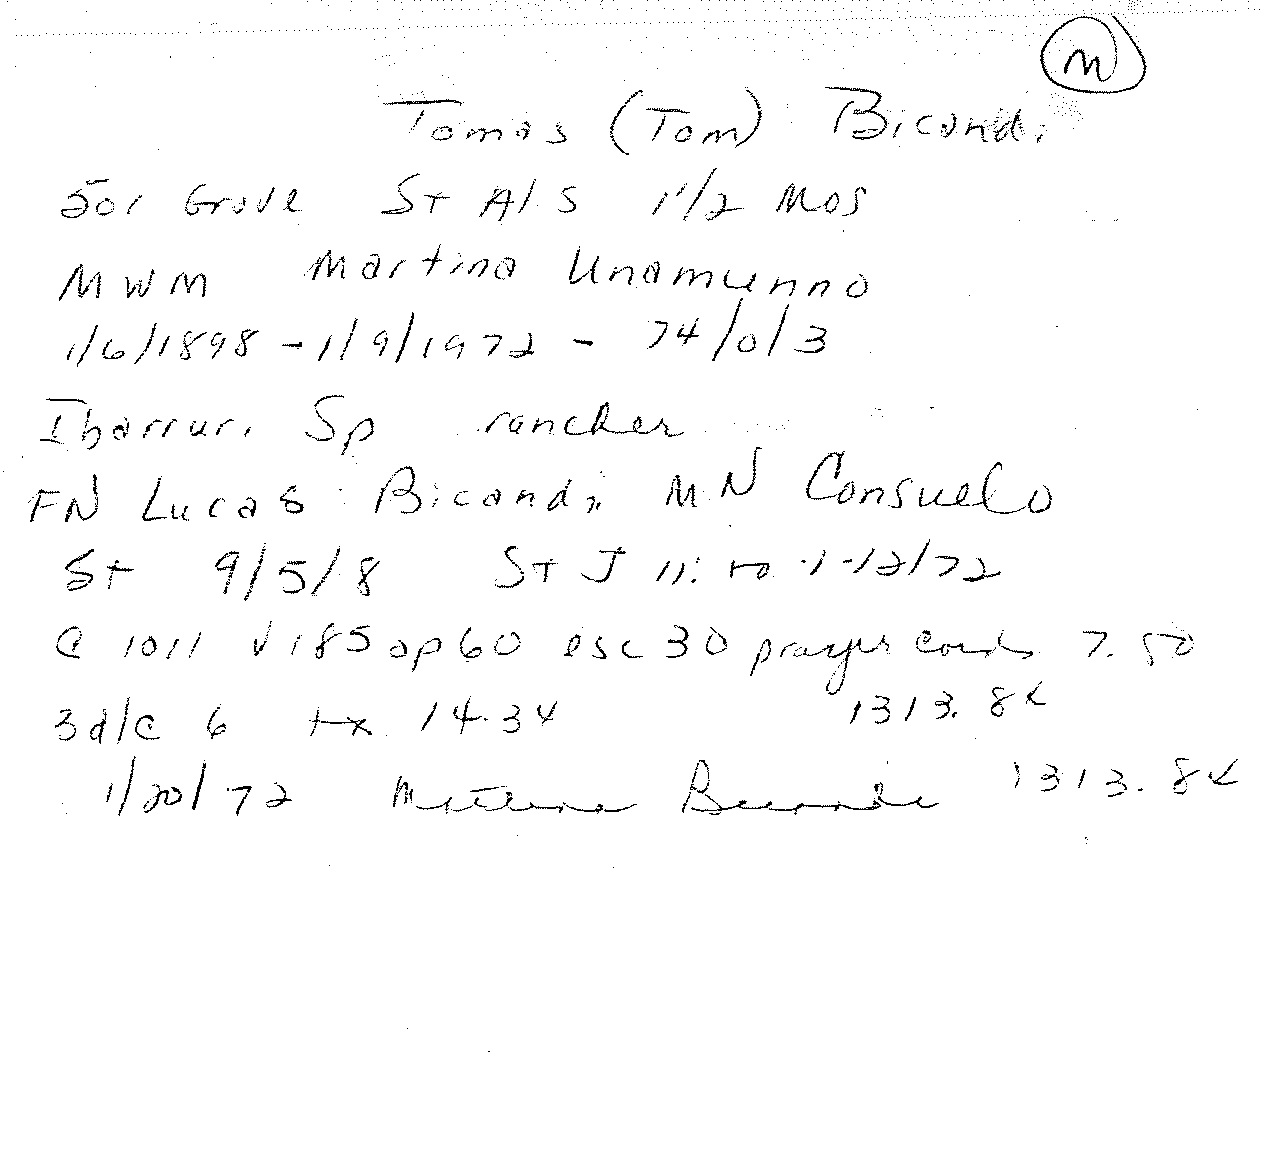 M
Tomas (Tom) Bicandi
501 Grove St Al S 1 1/2 Mos
MWM Martina Unamunno
1/6/1898 - 1/9/1972 - 74/0/3
Ibarruri Sp rancher
FN Lucas Bicandi MN Consuelo
St 9/5/8 St J 11: to 1-12/72
C 1011 V 185 op 60 esc 30 prayer cards 7.50
3 d/c 6 tx 14.34 1313.84
1/20/72 Bicandi 1313.84